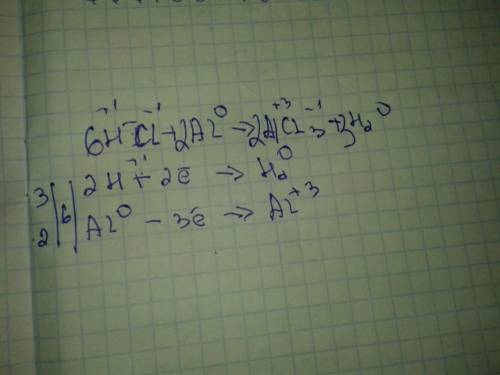 6H⁺¹Cl⁻¹ + 2Al⁰ → 2Al⁺³Cl₃⁻¹ + 3H₂⁰
3 | 6 | 2H⁺¹ + 2ē → H₂⁰
2 | Al⁰ − 3ē → Al⁺³